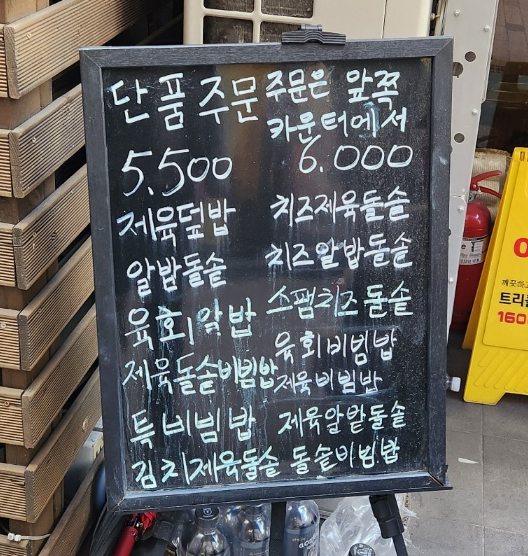 단품 주문
주문은 앞쪽
카운터에서
5.500
제육덮밥
알밥돌솥
육회알밥
제육돌솥비빔밥
특비빔밥
김치제육돌솥
6.000
치즈제육돌솥
치즈알밥돌솥
스팸치즈돌솥
육회비빔밥
제육비빔밥
제육알밭돌솥
돌솥비빔밥
트리플
160